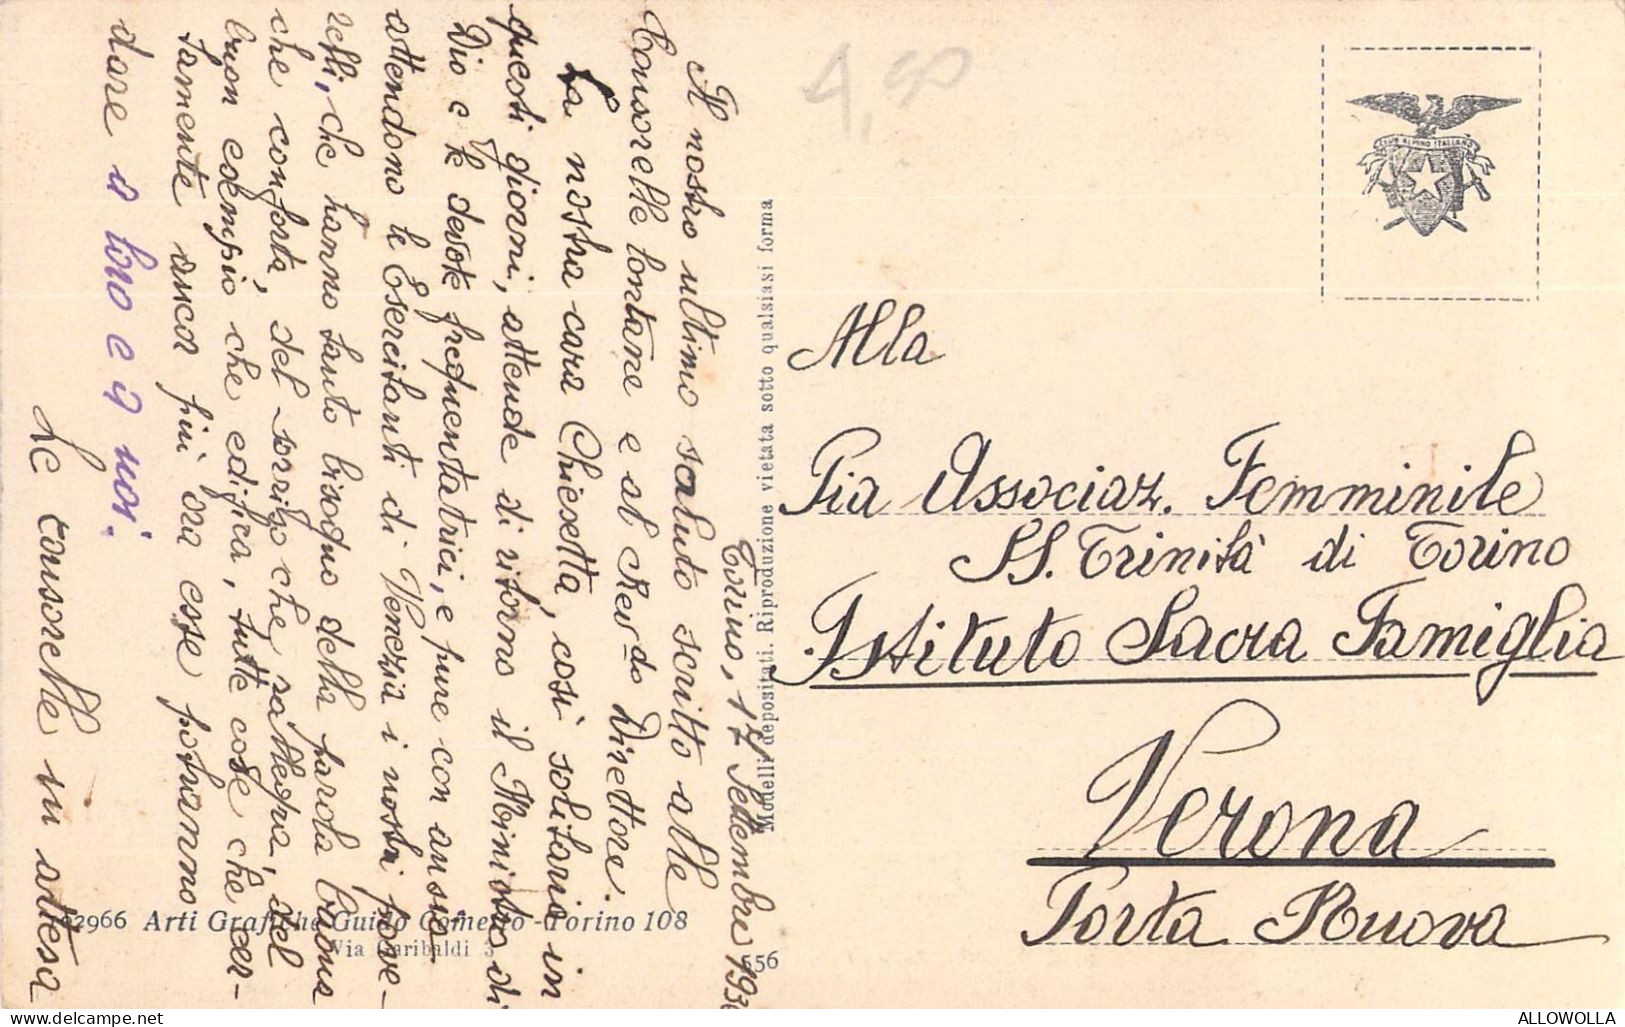 Torino, 17 Settembre 193
Il nostro ultimo saluto scritto alle
Consorelle lontane e al Rev.do Direttore.
La nostra cara Chiesetta, così solitaria in
questi giorni, attende di ritorno il Ministro di
Dio e le devote frequentatrici, e pure con ansia
attendono le Esercitanti di Venezia i nostri pove-
retti, che hanno tanto bisogno della parola buona
che conforta, del sorriso che rallegra, del
buon esempio che edifica, tutte cose che cer-
tamente ancor più ora esse potranno
dare a loro e a noi.
Le consorelle in attesa
4,50
CLUB ALPINO ITALIANO
Alla
Pia Associaz. Femminile
SS. Trinità di Torino
Istituto Sacra Famiglia
Verona
Porta Nuova
Modelli depositati. Riproduzione vietata sotto qualsiasi forma
2966 Arti Grafiche Guido Cometto - Torino 108
Via Garibaldi 3
556
Delcampe.net
ALLOWOLLA